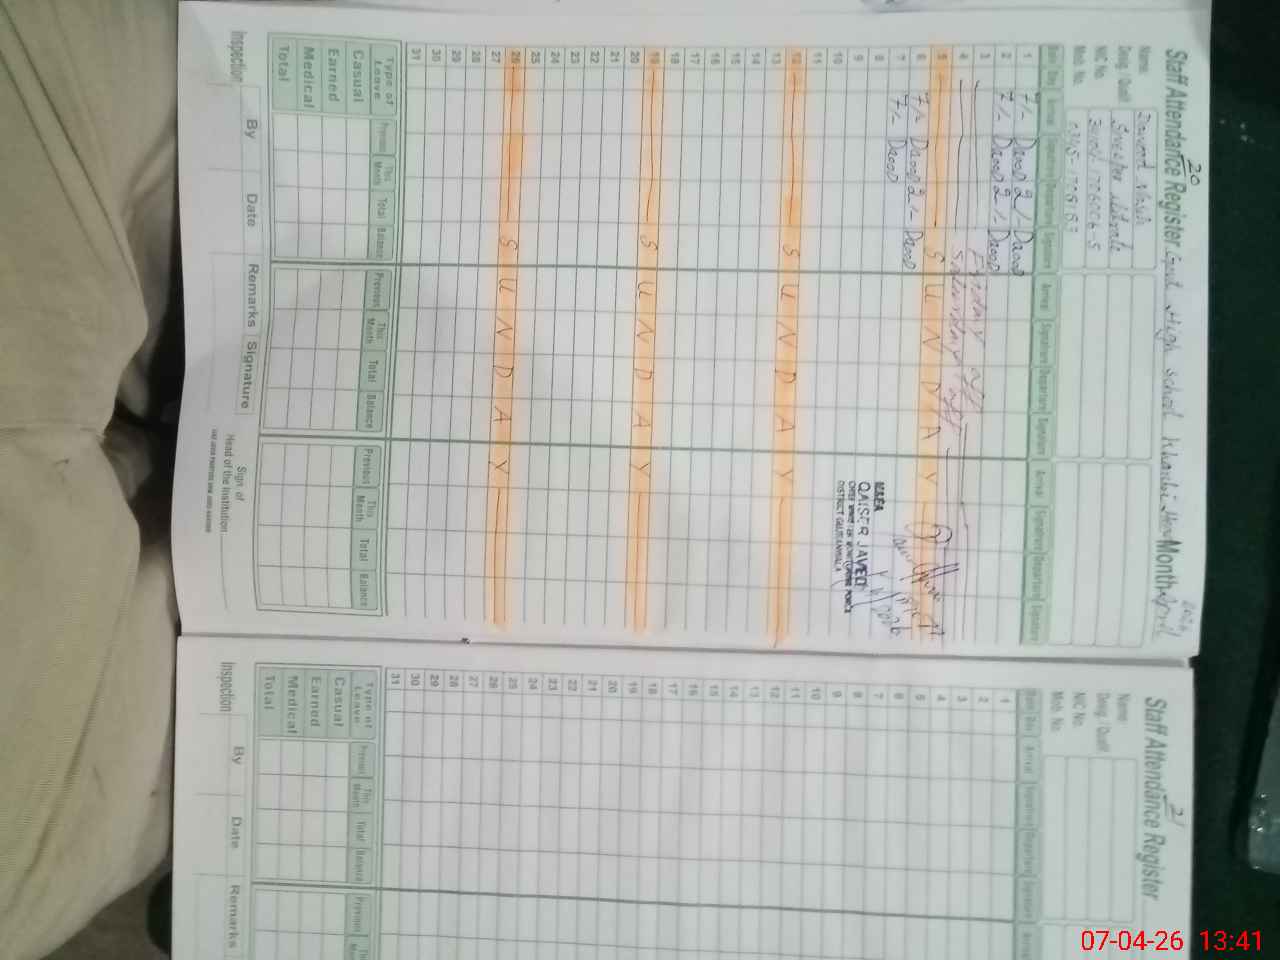 20
Staff Attendance Register Govt High School Month April 2026
Name:
Desig. / Qualif:
NIC No.
Mob. No.
Date Day Arrival Signature Departure Signature Arrival Signature Departure Signature Arrival Signature Departure Signature
1 7/- Daood 2/- Daood
2 7/- Daood 2/- Daood
3 Friday off
4 Saturday off
5 SUNDAY
6 7/- Daood 2/- Daood
7 7/- Daood
8
9
10
11
12 SUNDAY
13
14
15
16
17
18
19 SUNDAY
20
21
22
23
24
25
26 SUNDAY
27
28
29
30
31
M&EA
QAISER JAVED
CHIEF MINISTER MONITORING FORCE
DISTRICT GUJRANWALA
Type of Leave Previous This Month Total Balance Previous This Month Total Balance Previous This Month Total Balance
Casual
Earned
Medical
Total
Inspection By Date Remarks Signature
Sign of
Head of the Institution
21
Staff Attendance Register
Name:
Desig. / Qualif:
NIC No.
Mob. No.
Date Day Arrival Signature Departure Signature Arrival
1
2
3
4
5
6
7
8
9
10
11
12
13
14
15
16
17
18
19
20
21
22
23
24
25
26
27
28
29
30
31
Type of Leave Previous This Month Total Balance Previous This
Casual
Earned
Medical
Total
Inspection By Date Remarks
07-04-26 13:41